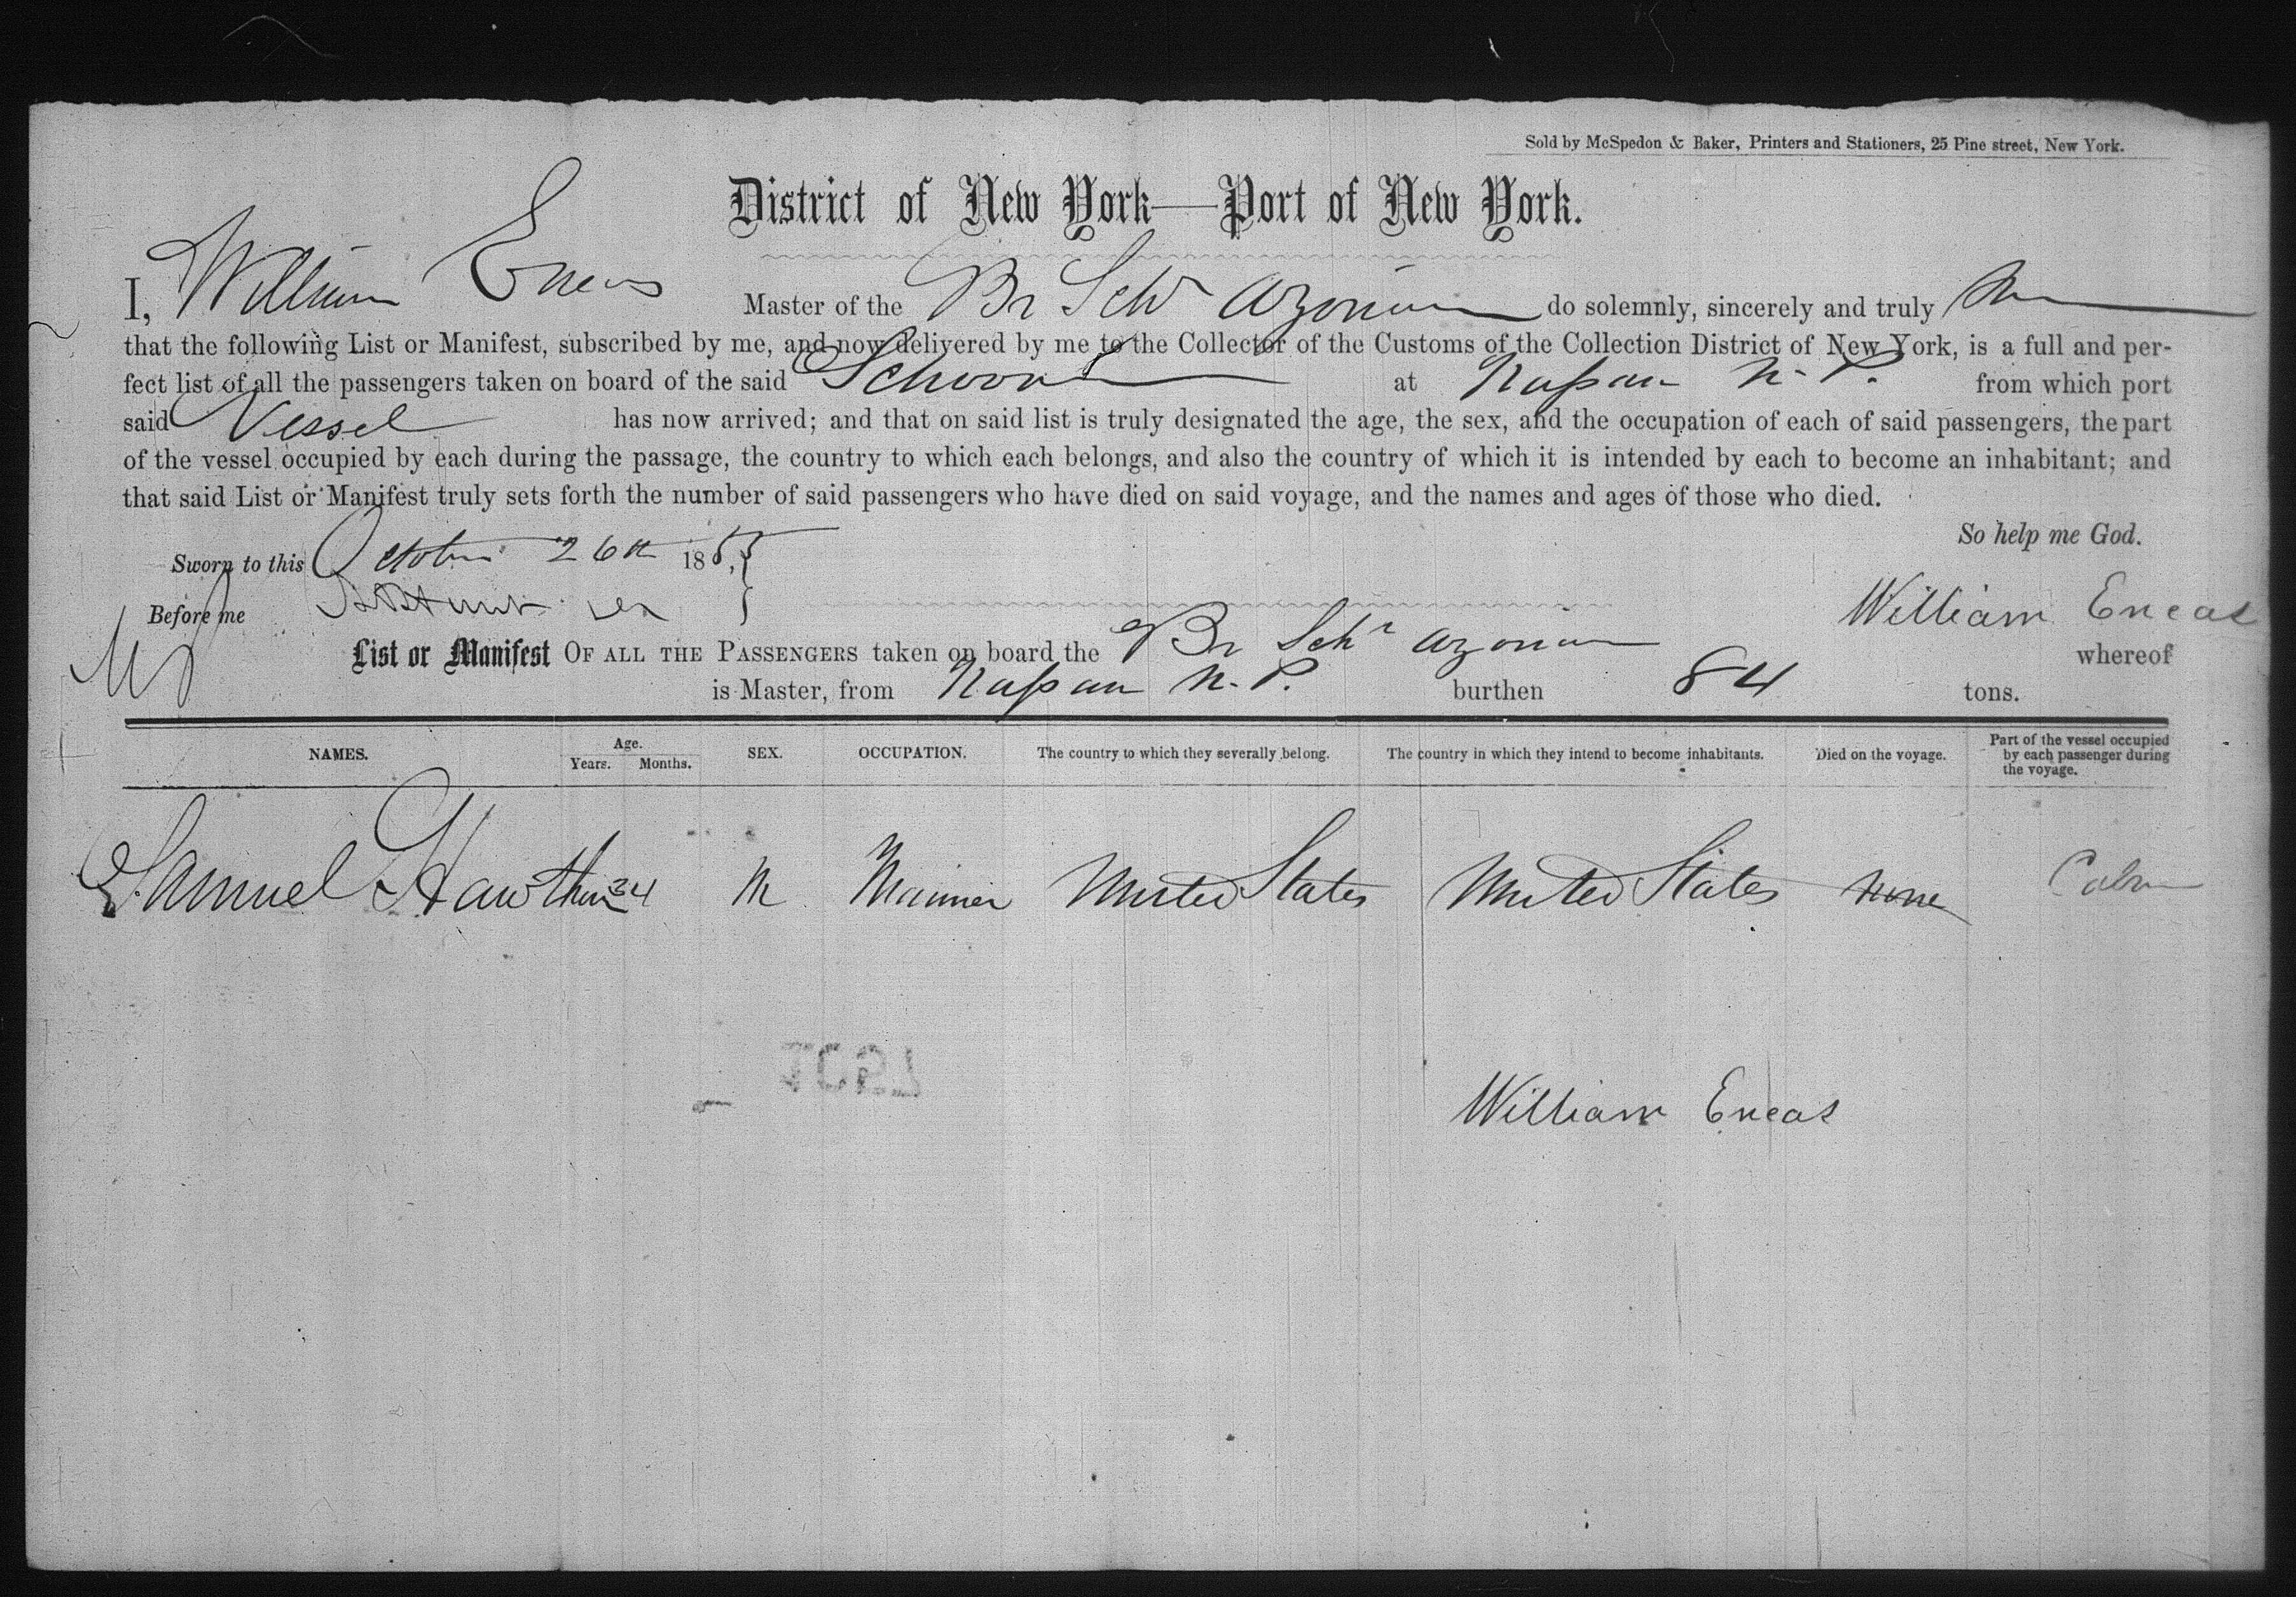 Sold by McSpedon & Baker, Printers and Stationers, 25 Pine street, New York.
District of New York—Port of New York.
I, William Eneas Master of the Br Schr Azorian do solemnly, sincerely and truly
that the following List or Manifest, subscribed by me, and now delivered by me to the Collector of the Customs of the Collection District of New York, is a full and per-
fect list of all the passengers taken on board of the said Schooner at Nassau N. P. from which port
said Vessel has now arrived; and that on said list is truly designated the age, the sex, and the occupation of each of said passengers, the part
of the vessel occupied by each during the passage, the country to which each belongs, and also the country of which it is intended by each to become an inhabitant; and
that said List or Manifest truly sets forth the number of said passengers who have died on said voyage, and the names and ages of those who died.
So help me God.
Sworn to this October 26th 18
Before me
William Eneas
List or Manifest OF ALL THE PASSENGERS taken on board the Br Schr Azorian whereof
is Master, from Nassau N. P. burthen 84 tons.
NAMES. Age. Years. Months. SEX. OCCUPATION. The country to which they severally belong. The country in which they intend to become inhabitants. Died on the voyage. Part of the vessel occupied by each passenger during the voyage.
Samuel Hawthin 34 M Mariner United States United States None Cabin
William Eneas